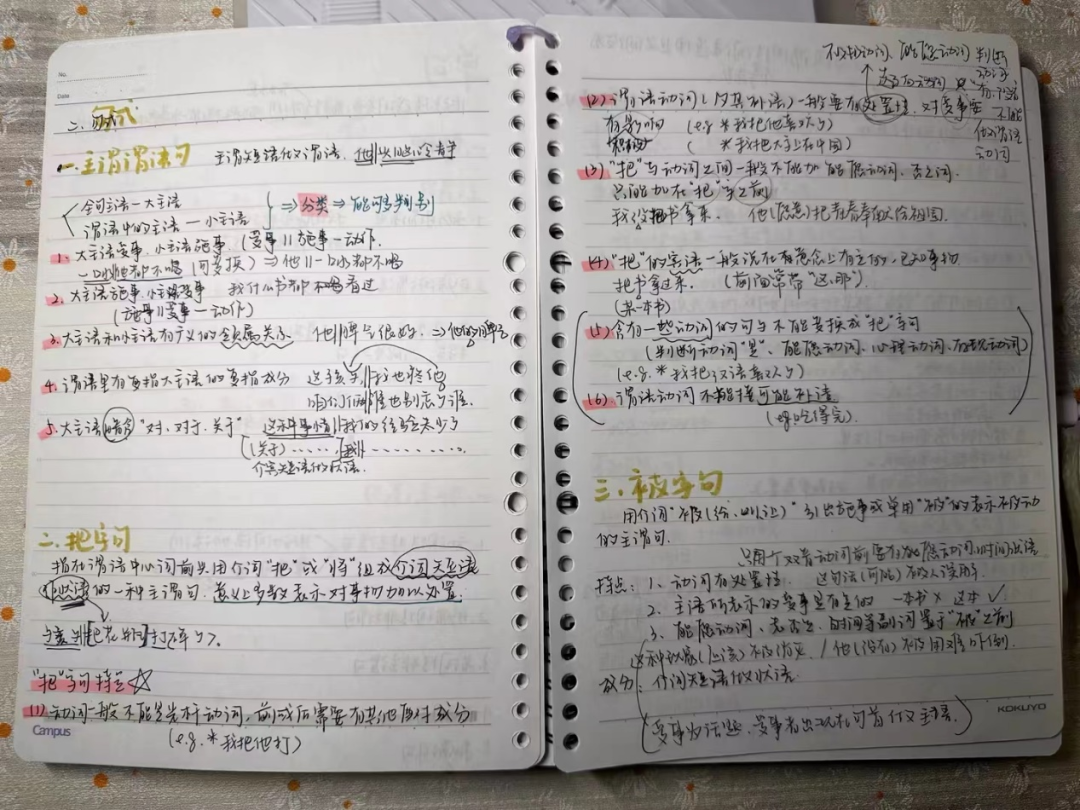 No.
Date
二、句式
一.主谓谓语句 主谓短语做谓语,
全句主语—大主语
谓语中的主语—小主语
⇒分类⇒能够判别
1. 大主语受事,小主语施事.(受事||施事—动作.
一口水他都不喝(可变换)⇒他||一口水都不喝
2. 大主语施事,小主语受事 我什么书都不看过
(施事||受事—动作)
3. 大主语和小主语有广义的领属关系. 他||脾气很好.⇒他的脾气
4. 谓语里有复指大主语的复指成分 这孩子,||我也疼他
咱们俩||谁也别忘了谁.
5. 大主语暗含"对、对于、关于" 这种事情||我的经验太少了
(关于)......,||我......
介宾短语做状语.
二.把字句
指在谓语中心词前头用介词"把"或"将"组成介词短语
作状语的一种主谓句.意义上多数表示对事物加以处置.
[把花瓶]打碎了.
"把"字句特点☆
(1)动词一般不能是光杆动词,前或后需要有其他连带成分
(e.g.*我把他打)
Campus
不及物动词、能愿动词、判断动词
不能做谓语动词
(2)谓语动词(及其补语)一般要有处置性,对受事要
有影响 (e.g.*我把他喜欢了)
(*我把大学在中国)
(3)"把"与动词之间一般不能加能愿动词、否定词.
只能加在"把"字之前
我没把书拿来. 他(愿意)把青春奉献给祖国.
(4)"把"的宾语一般说在意念上有定的,已知事物
把书拿过来.(前面常带"这、那").
(某一本书)
(5)含有一些动词的句子不能变换成"把"字句
(判断动词"是"、能愿动词、心理动词、存现动词)
(e.g.*我把汉语喜欢了)
(6)谓语动词不能接可能补语
(吃得完).
三.被字句
用介词"被(给、叫、让)"引出施事或单用"被"的表示被动
的主谓句.
只有个双音动词前要有能愿动词、时间状语
特点: 1、动词有处置性. 这句话(可能)被人误解.
2. 主语所表示的受事是有定的 一本书× 这本✓
3. 能愿动词、否定、时间等副词置于"被"之前
这种现象(应该)被消灭. / 他(没有)被困难吓倒.
成分:介词短语做状语.
KOKUYO